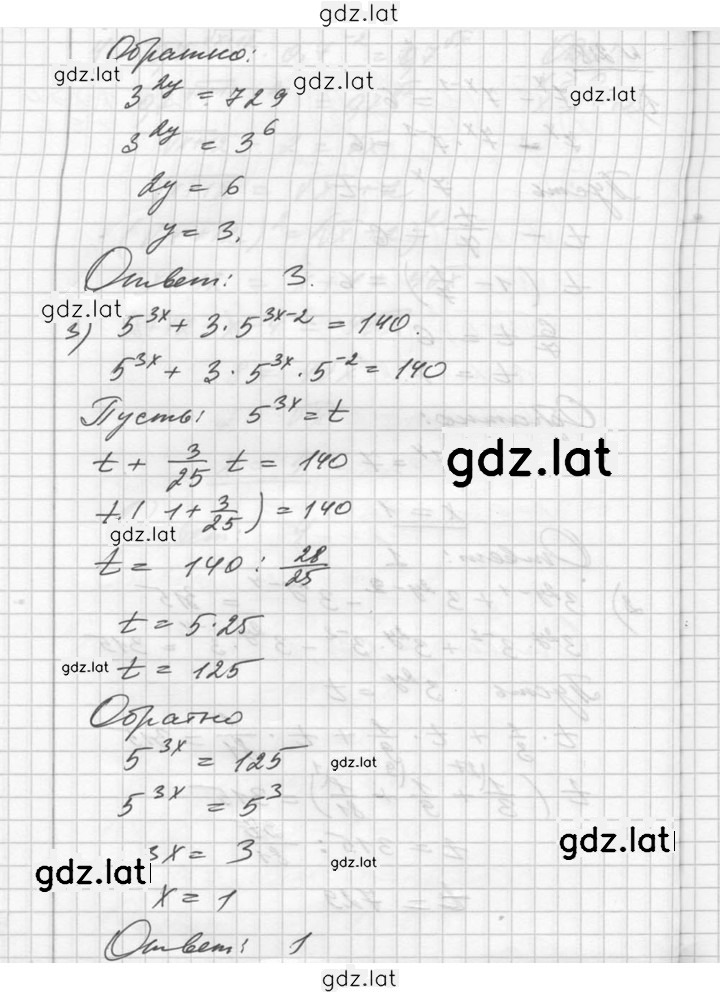 gdz.lat
Обратно:
gdz.lat
gdz.lat
gdz.lat
3^{2y} = 729
3^{2y} = 3^6
2y = 6
y = 3.
Ответ: 3.
gdz.lat
3) 5^{3x} + 3 · 5^{3x-2} = 140.
5^{3x} + 3 · 5^{3x} · 5^{-2} = 140
Пусть: 5^{3x} = t
gdz.lat
t + \frac{3}{25} t = 140
t · (1 + \frac{3}{25}) = 140
gdz.lat
t = 140 : \frac{28}{25}
t = 5 · 25
gdz.lat
t = 125
Обратно
5^{3x} = 125
gdz.lat
5^{3x} = 5^3
gdz.lat
3x = 3
gdz.lat
gdz.lat
x = 1
Ответ: 1
gdz.lat